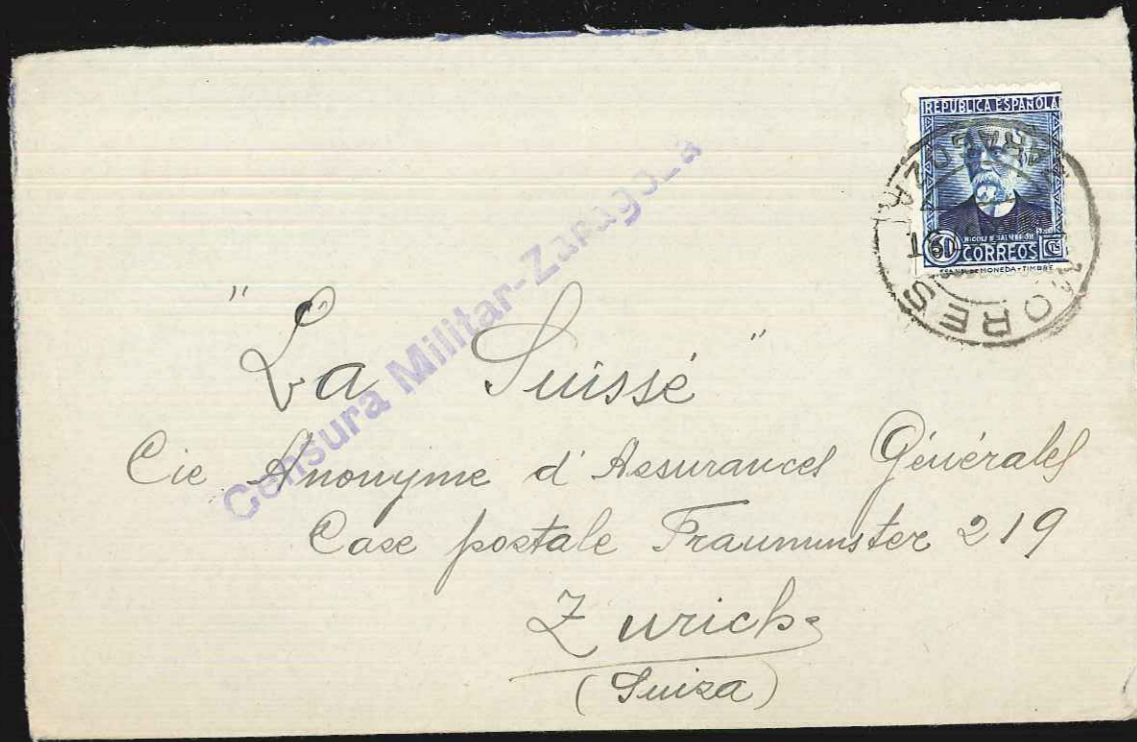 REPUBLICA ESPAÑOLA
CORREOS CTS
MONEDA Y TIMBRE
ZARAGOZA
Censura Militar-Zarago_a
"La Suissé"
Cie Anonyme d'Assurances Générales
Case postale Fraumunster 219
Zurich
(Suiza)